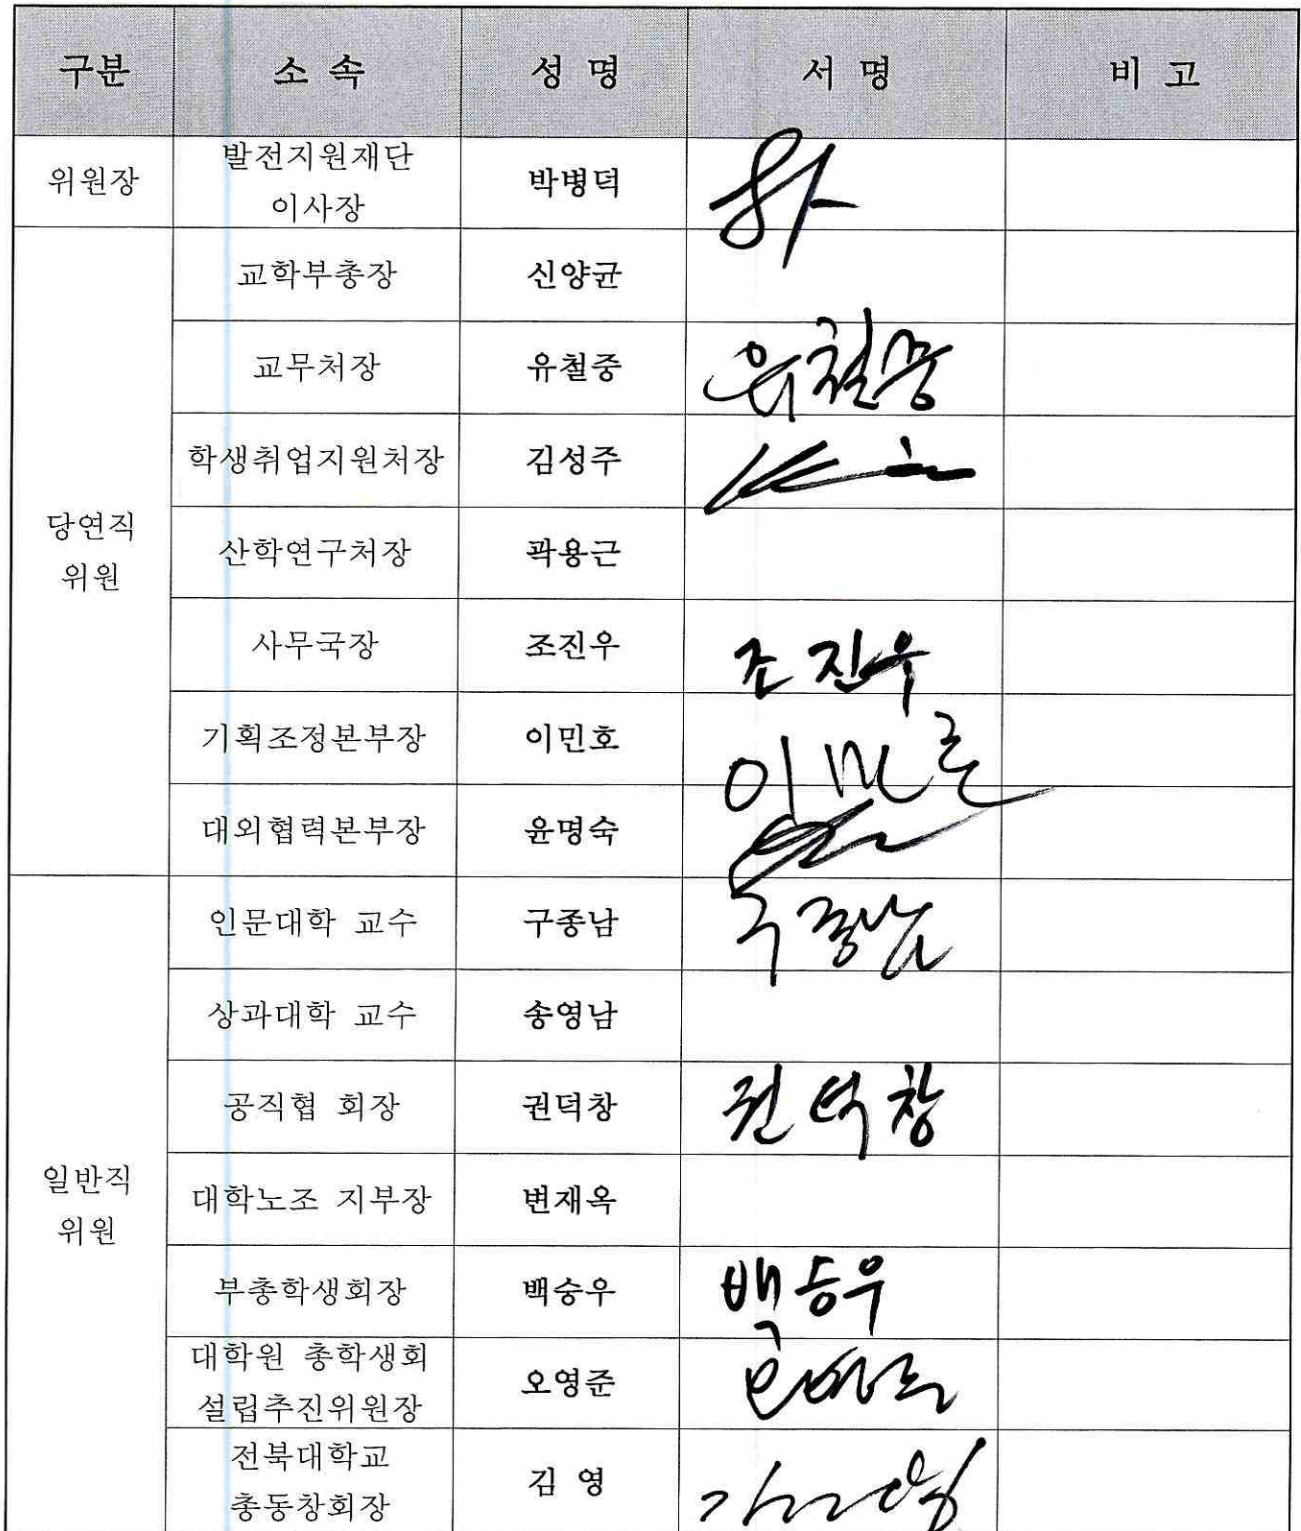 구분 소 속 성 명 서 명 비 고
위원장 발전지원재단
이사장 박병덕
당연직
위원
교학부총장 신양균
교무처장 유철중 유철중
학생취업지원처장 김성주
산학연구처장 곽용근
사무국장 조진우 조진우
기획조정본부장 이민호 이민호
대외협력본부장 윤명숙
일반직
위원
인문대학 교수 구종남 구종남
상과대학 교수 송영남
공직협 회장 권덕창 권덕창
대학노조 지부장 변재옥
부총학생회장 백승우 백승우
대학원 총학생회
설립추진위원장 오영준
전북대학교
총동창회장 김 영